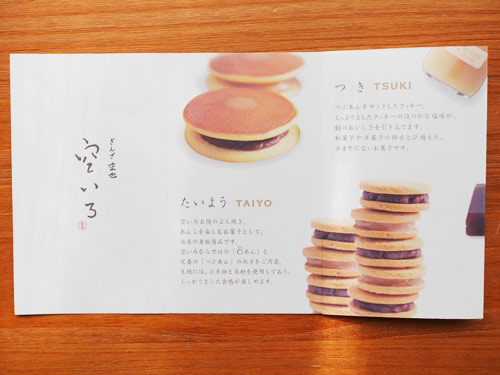 ぎんざ空也
空いろ
たいよう TAIYO
空いろ自慢のどら焼き。
あんこを楽しむお菓子として、
当店の看板商品です。
空いろならではの「白あん」と
定番の「つぶあん」の両方をご用意。
生地には、小麦粉と米粉を使用しており、
しっかりとした食感が楽しめます。
つき TSUKI
つぶあんをサンドしたクッキー。
しっとりとしたクッキーのほのかな塩味が、
餡のおいしさを引き立てます。
和菓子や洋菓子の枠をとび越えた、
今までにないお菓子です。